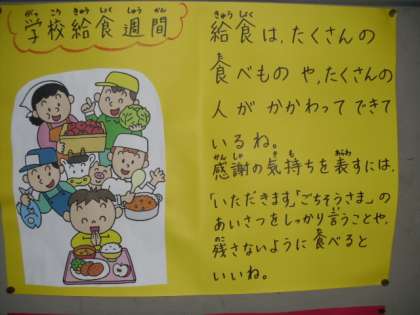 学校給食週間
給食は、たくさんの
食べものや、たくさんの
人がかかわってできて
いるね。
感謝の気持ちを表すには、
「いただきます」「ごちそうさま」の
あいさつをしっかり言うことや、
残さないように食べると
いいね。